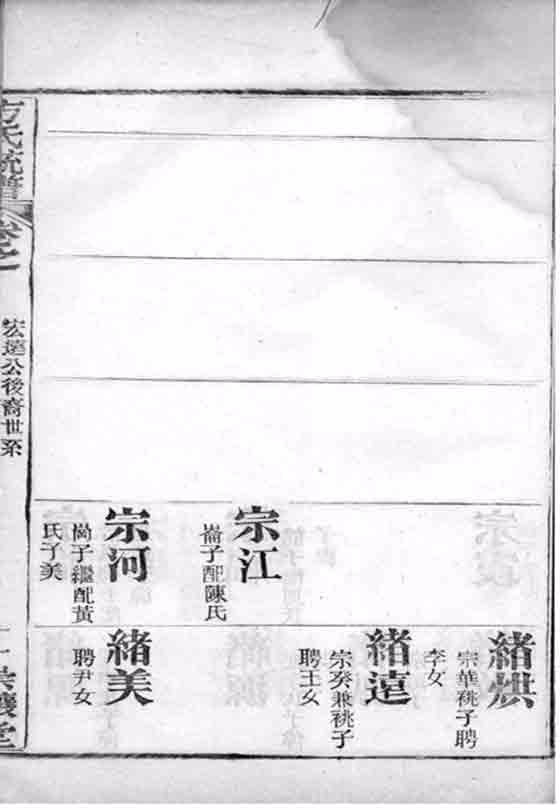 宗江
崙子配陳氏
宗河
崗子繼配黃
氏子美
緒烘
宗華祧子聘
李女
緒遠
宗癸兼祧子
聘王女
緒美
聘尹女
方氏統譜
卷之
宏達公後裔世系